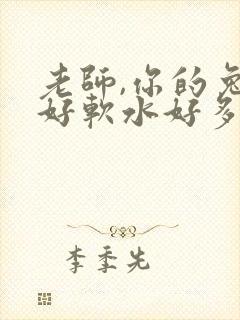 老師,你的兔
好軟水好多
李季先